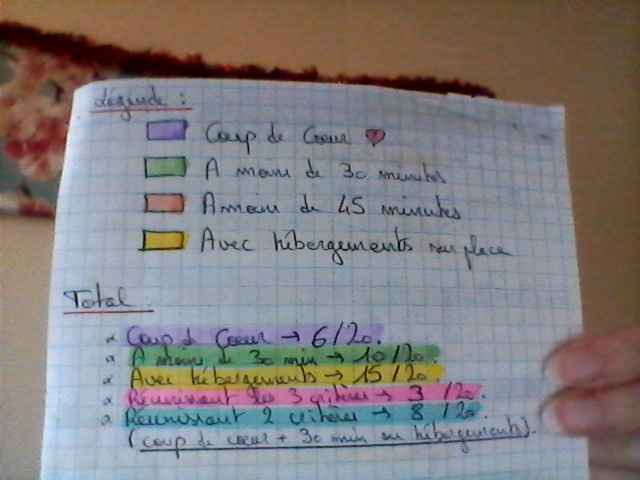 Légende :
Coup de Coeur
A moins de 30 minutes
A moins de 45 minutes
Avec hébergements sur place
Total
Coup de Coeur → 6/20.
A moins de 30 min → 10/20.
Avec hébergements → 15/20.
Réunissant les 3 critères → 3 /20.
Réunissant 2 critères → 8 /20.
(coup de coeur + 30 min ou hébergements).